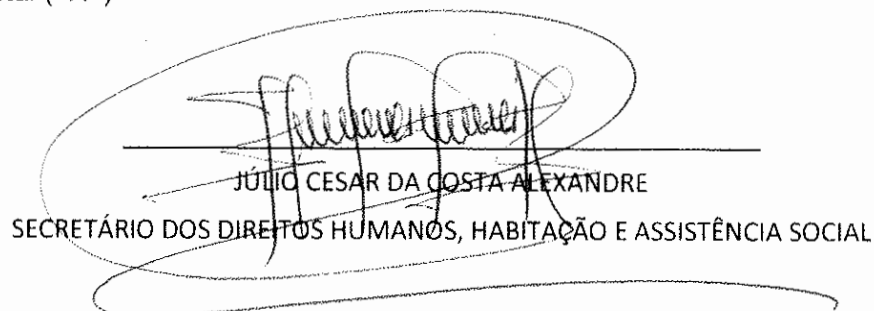 JÚLIO CESAR DA COSTA ALEXANDRE
SECRETÁRIO DOS DIREITOS HUMANOS, HABITAÇÃO E ASSISTÊNCIA SOCIAL